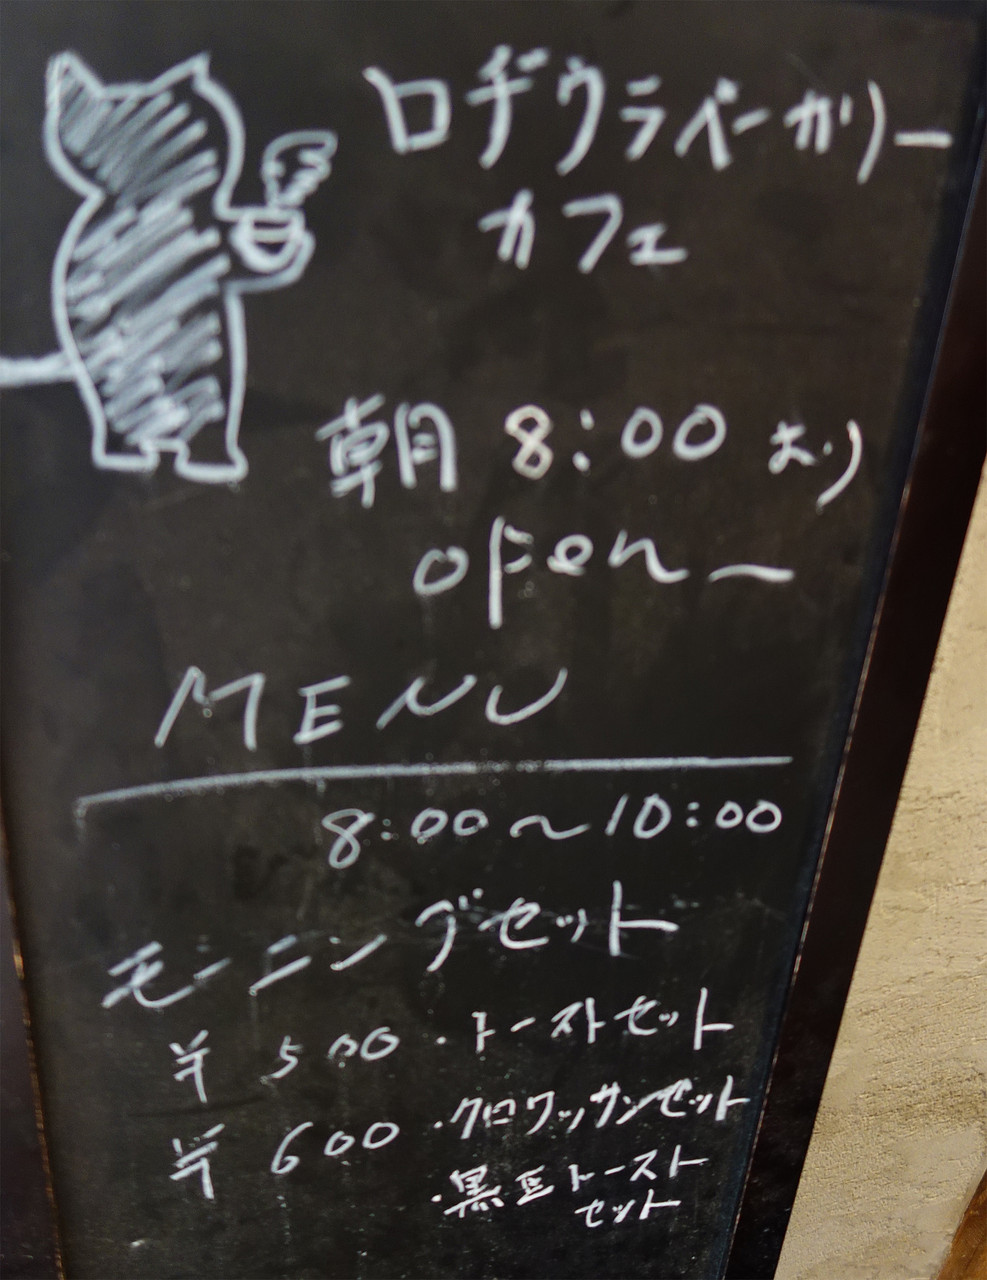 ロヂウラベーカリー
カフェ
朝 8:00 より
open〜
MENU
8:00〜10:00
モーニングセット
¥ 500 ・トーストセット
¥ 600 ・クロワッサンセット
・黒豆トースト
セット